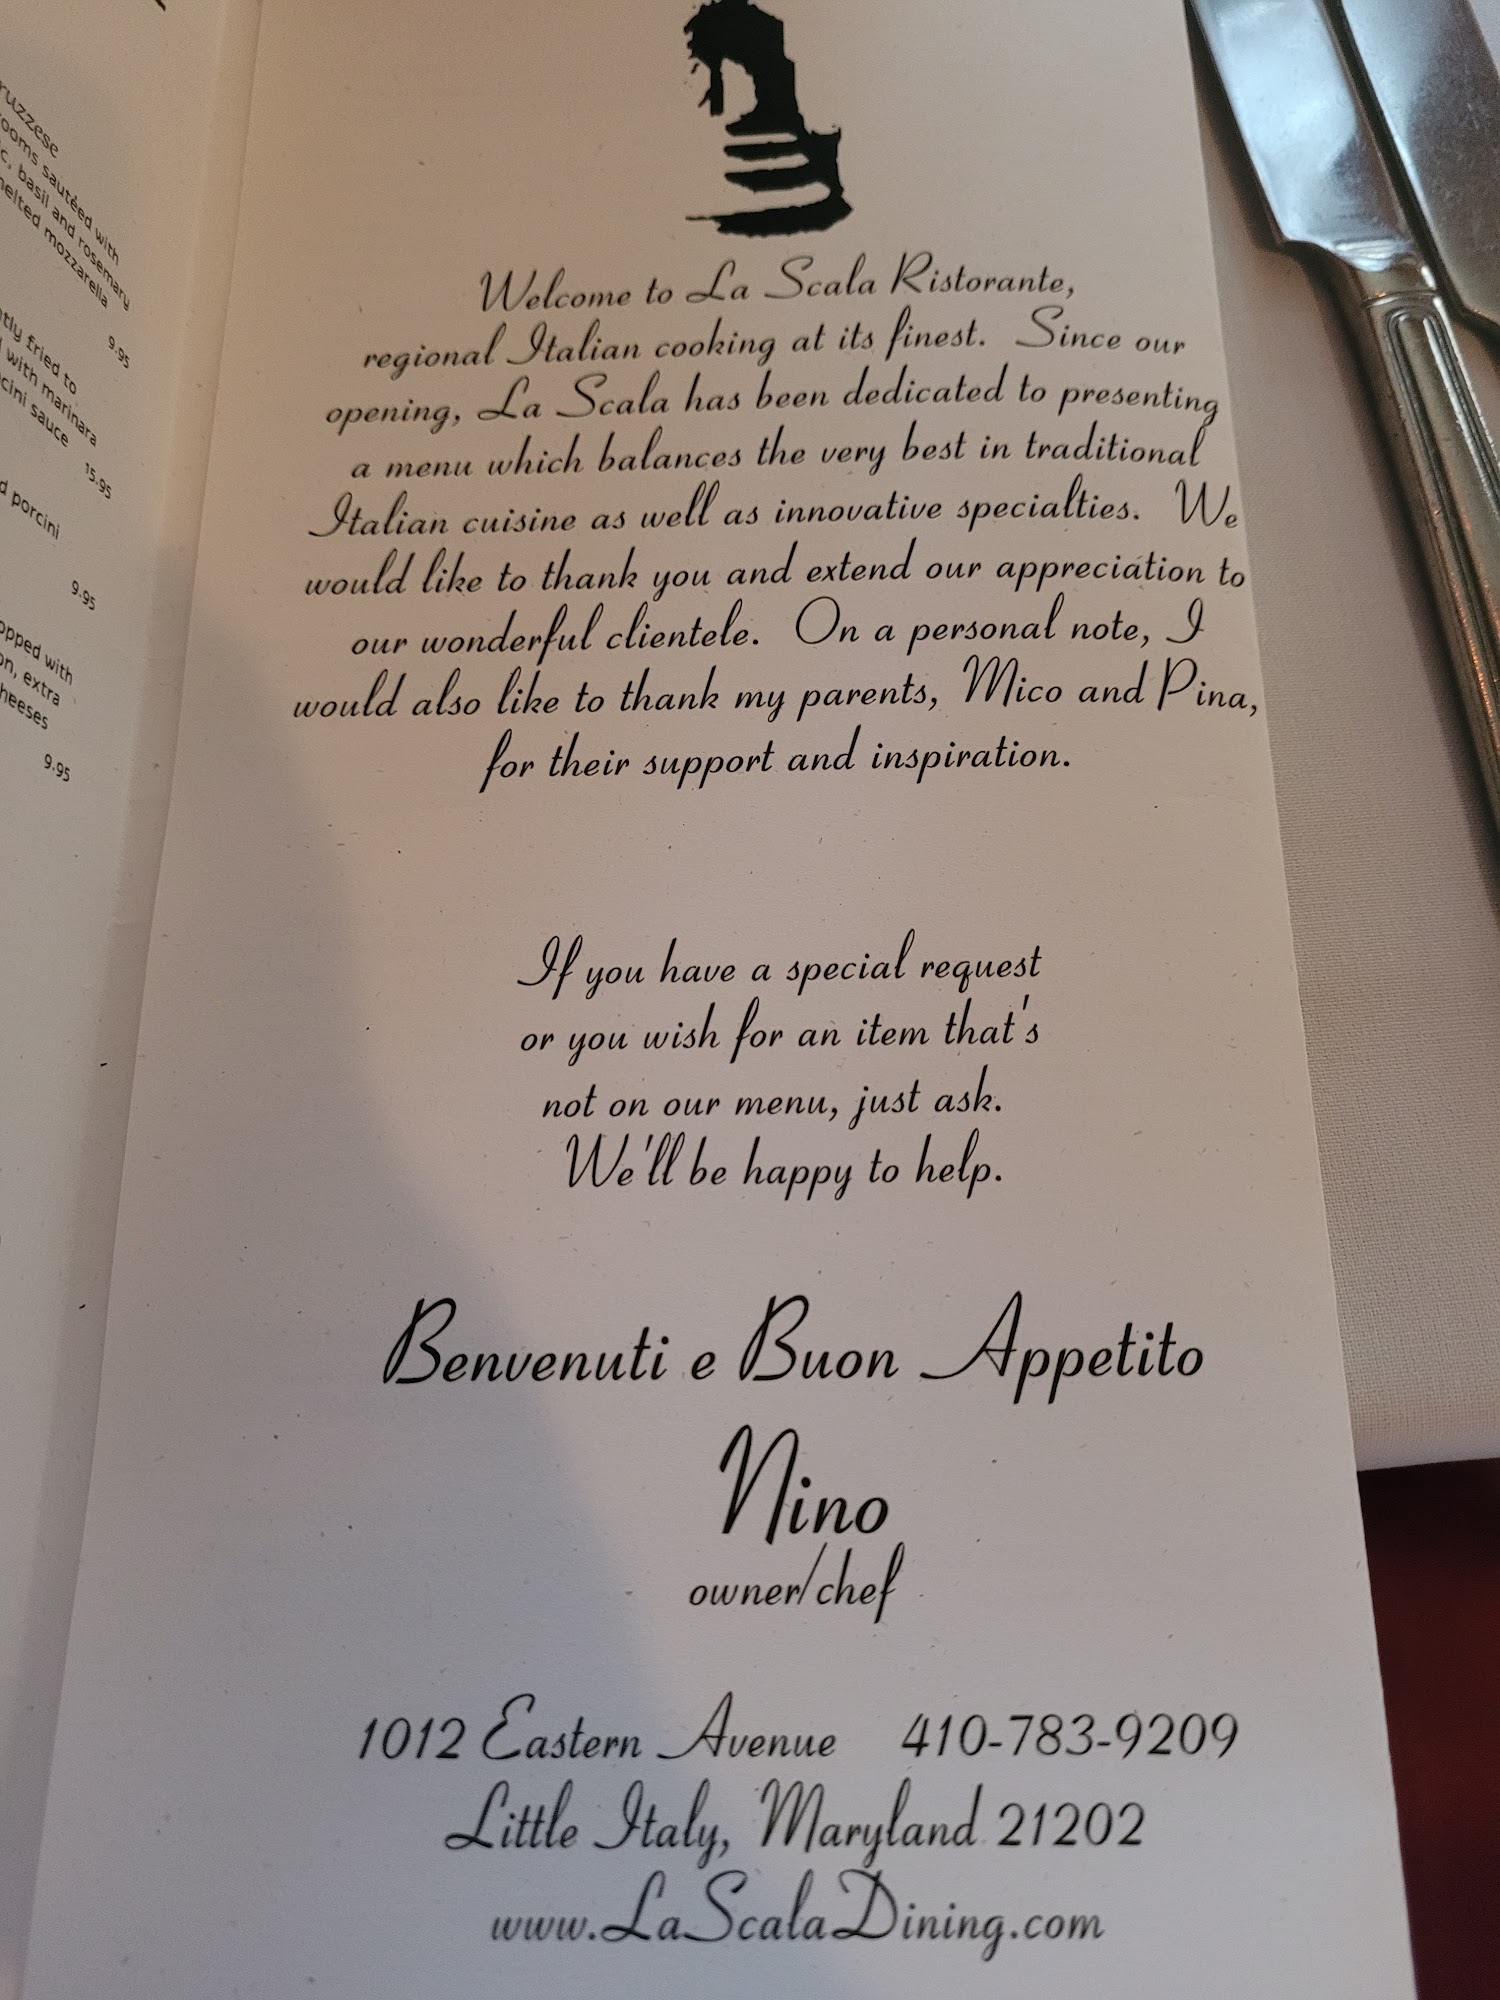 rooms sautéed with
basil and rosemary
melted mozzarella
9.95
fried to
with marinara
sauce
15.95
porcini
9.95
with
extra
9.95
Welcome to La Scala Ristorante,
regional Italian cooking at its finest. Since our
opening, La Scala has been dedicated to presenting
a menu which balances the very best in traditional
Italian cuisine as well as innovative specialties. We
would like to thank you and extend our appreciation to
our wonderful clientele. On a personal note, I
would also like to thank my parents, Mico and Pina,
for their support and inspiration.
If you have a special request
or you wish for an item that's
not on our menu, just ask.
We'll be happy to help.
Benvenuti e Buon Appetito
Nino
owner/chef
1012 Eastern Avenue 410-783-9209
Little Italy, Maryland 21202
www.LaScalaDining.com